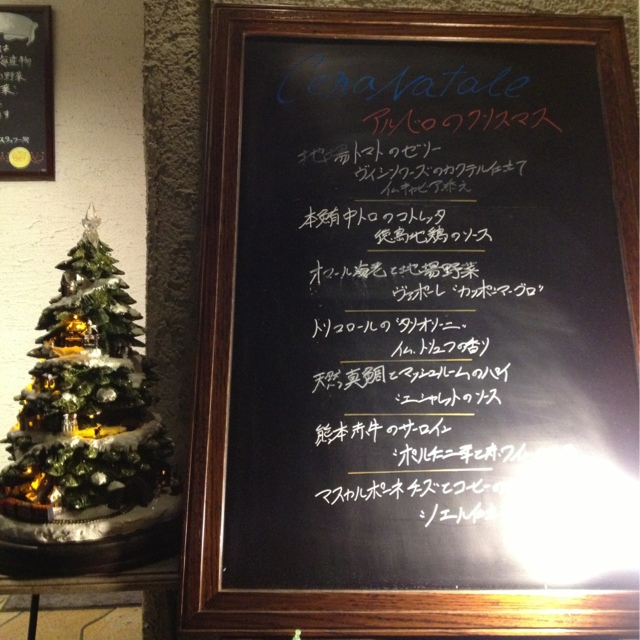 は
海産物
の野菜
菜
す
スタッフ一同
Cena Natale
アルベロのクリスマス
地場トマトのゼリー
ヴィシソワーズのカクテル仕立て
イム キャビア添え
本鮪中トロのコトレッタ
徳島地鶏のソース
オマール海老と地場野菜
ヴァポーレ "カッポンマーグロ"
トリコロールの"タリオリーニ"
イム、トリュフの香り
天然真鯛とマッシュルームのパイ
エシャレットのソース
熊本赤牛のサーロイン
ポルチーニ茸と赤ワイン
マスカルポーネチーズとコーヒーの
ジェル仕立